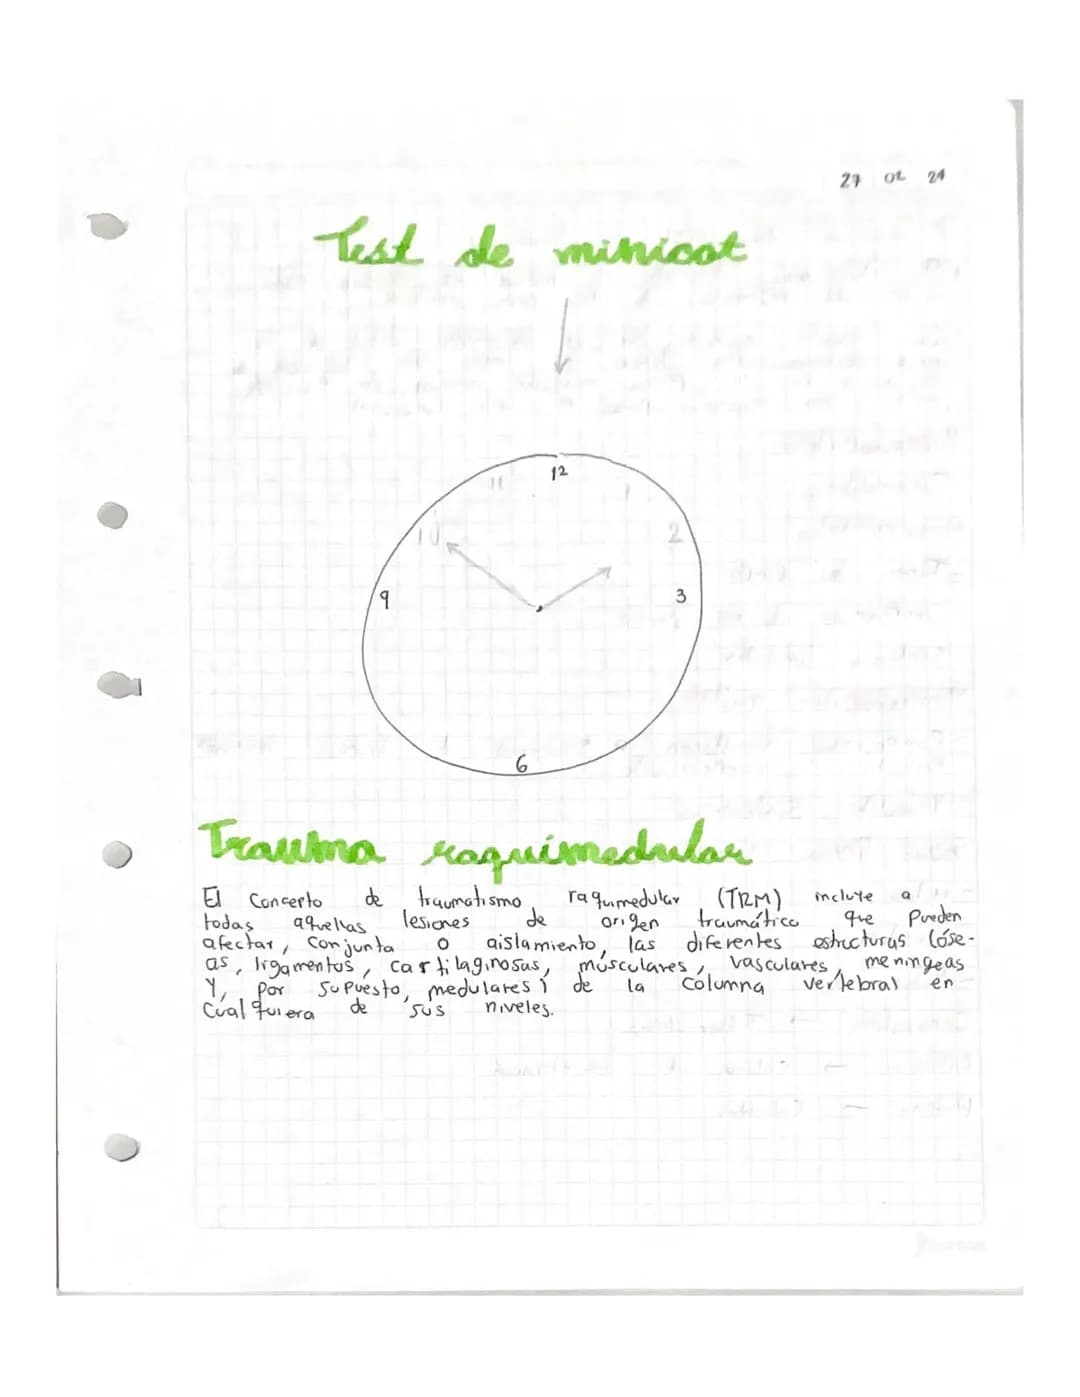 27 02 24
Test de minicot
12
11
1
10
2
9
3
6
Trauma raquimedular
El Concepto de traumatismo raquimedular (TRM) incluye a
todas aquellas lesiones de origen traumático que Pueden
afectar, Conjunta o aislamiento, las diferentes estructuras (óse-
as, ligamentos, cartilaginosas, músculares, vasculares, meningeas
Y, por supuesto, medulares) de la Columna vertebral en
Cualquiera de sus niveles.